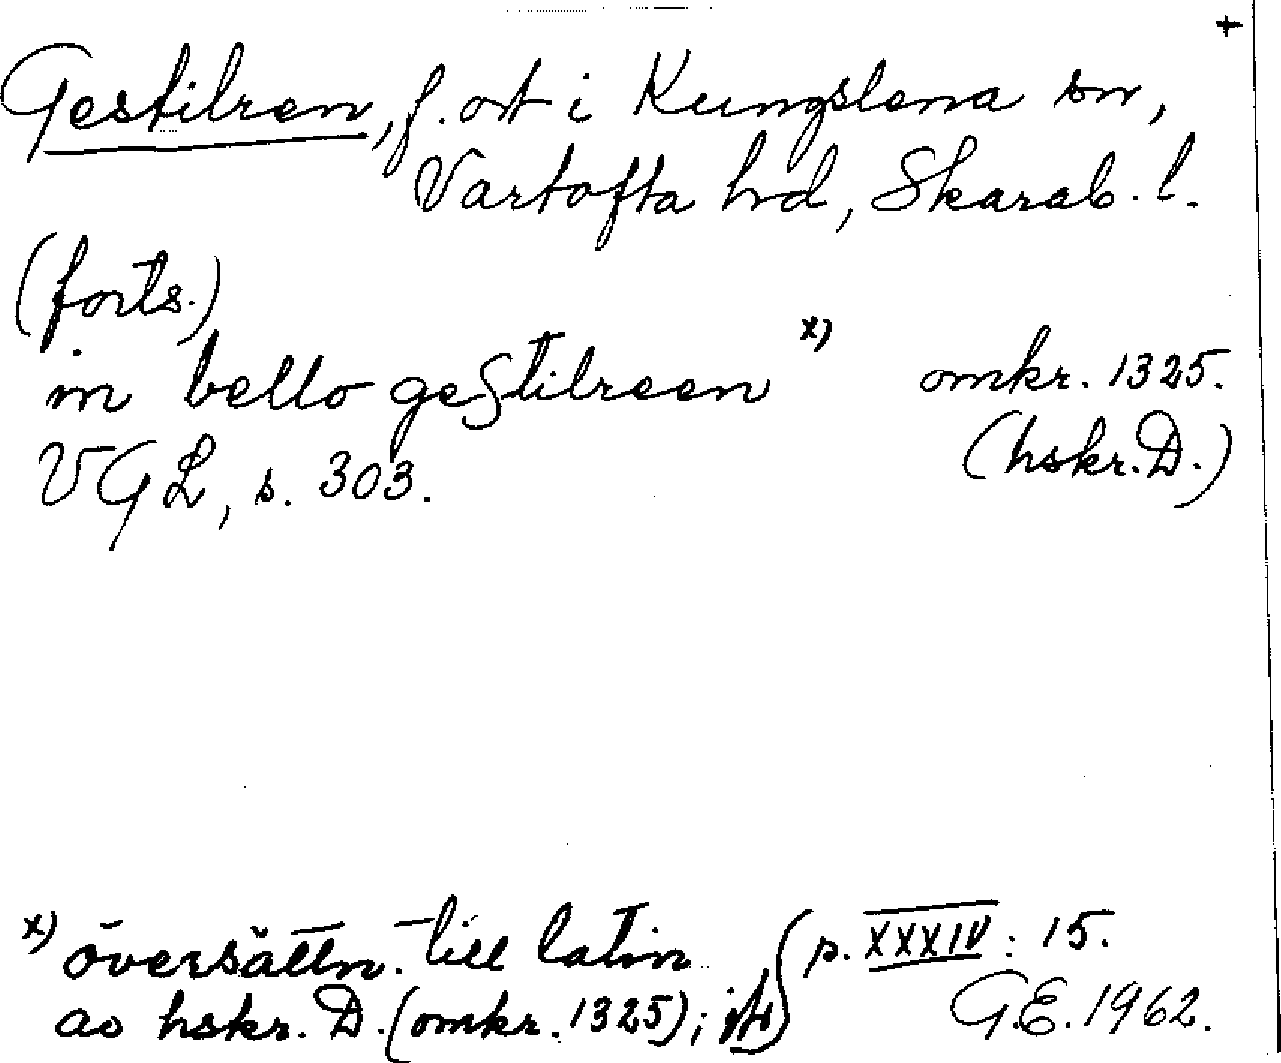 +
Gestilren, f. ort i Kungslena sn,
Vartofta hd, Skarab. l.
(forts.)
in bello gestilreen x) omkr. 1325.
VGL, s. 303. (hskr. D.)
x) översättn. till latin
av hskr. D. (omkr. 1325);
p. XXXIV: 15.
G.E. 1962.